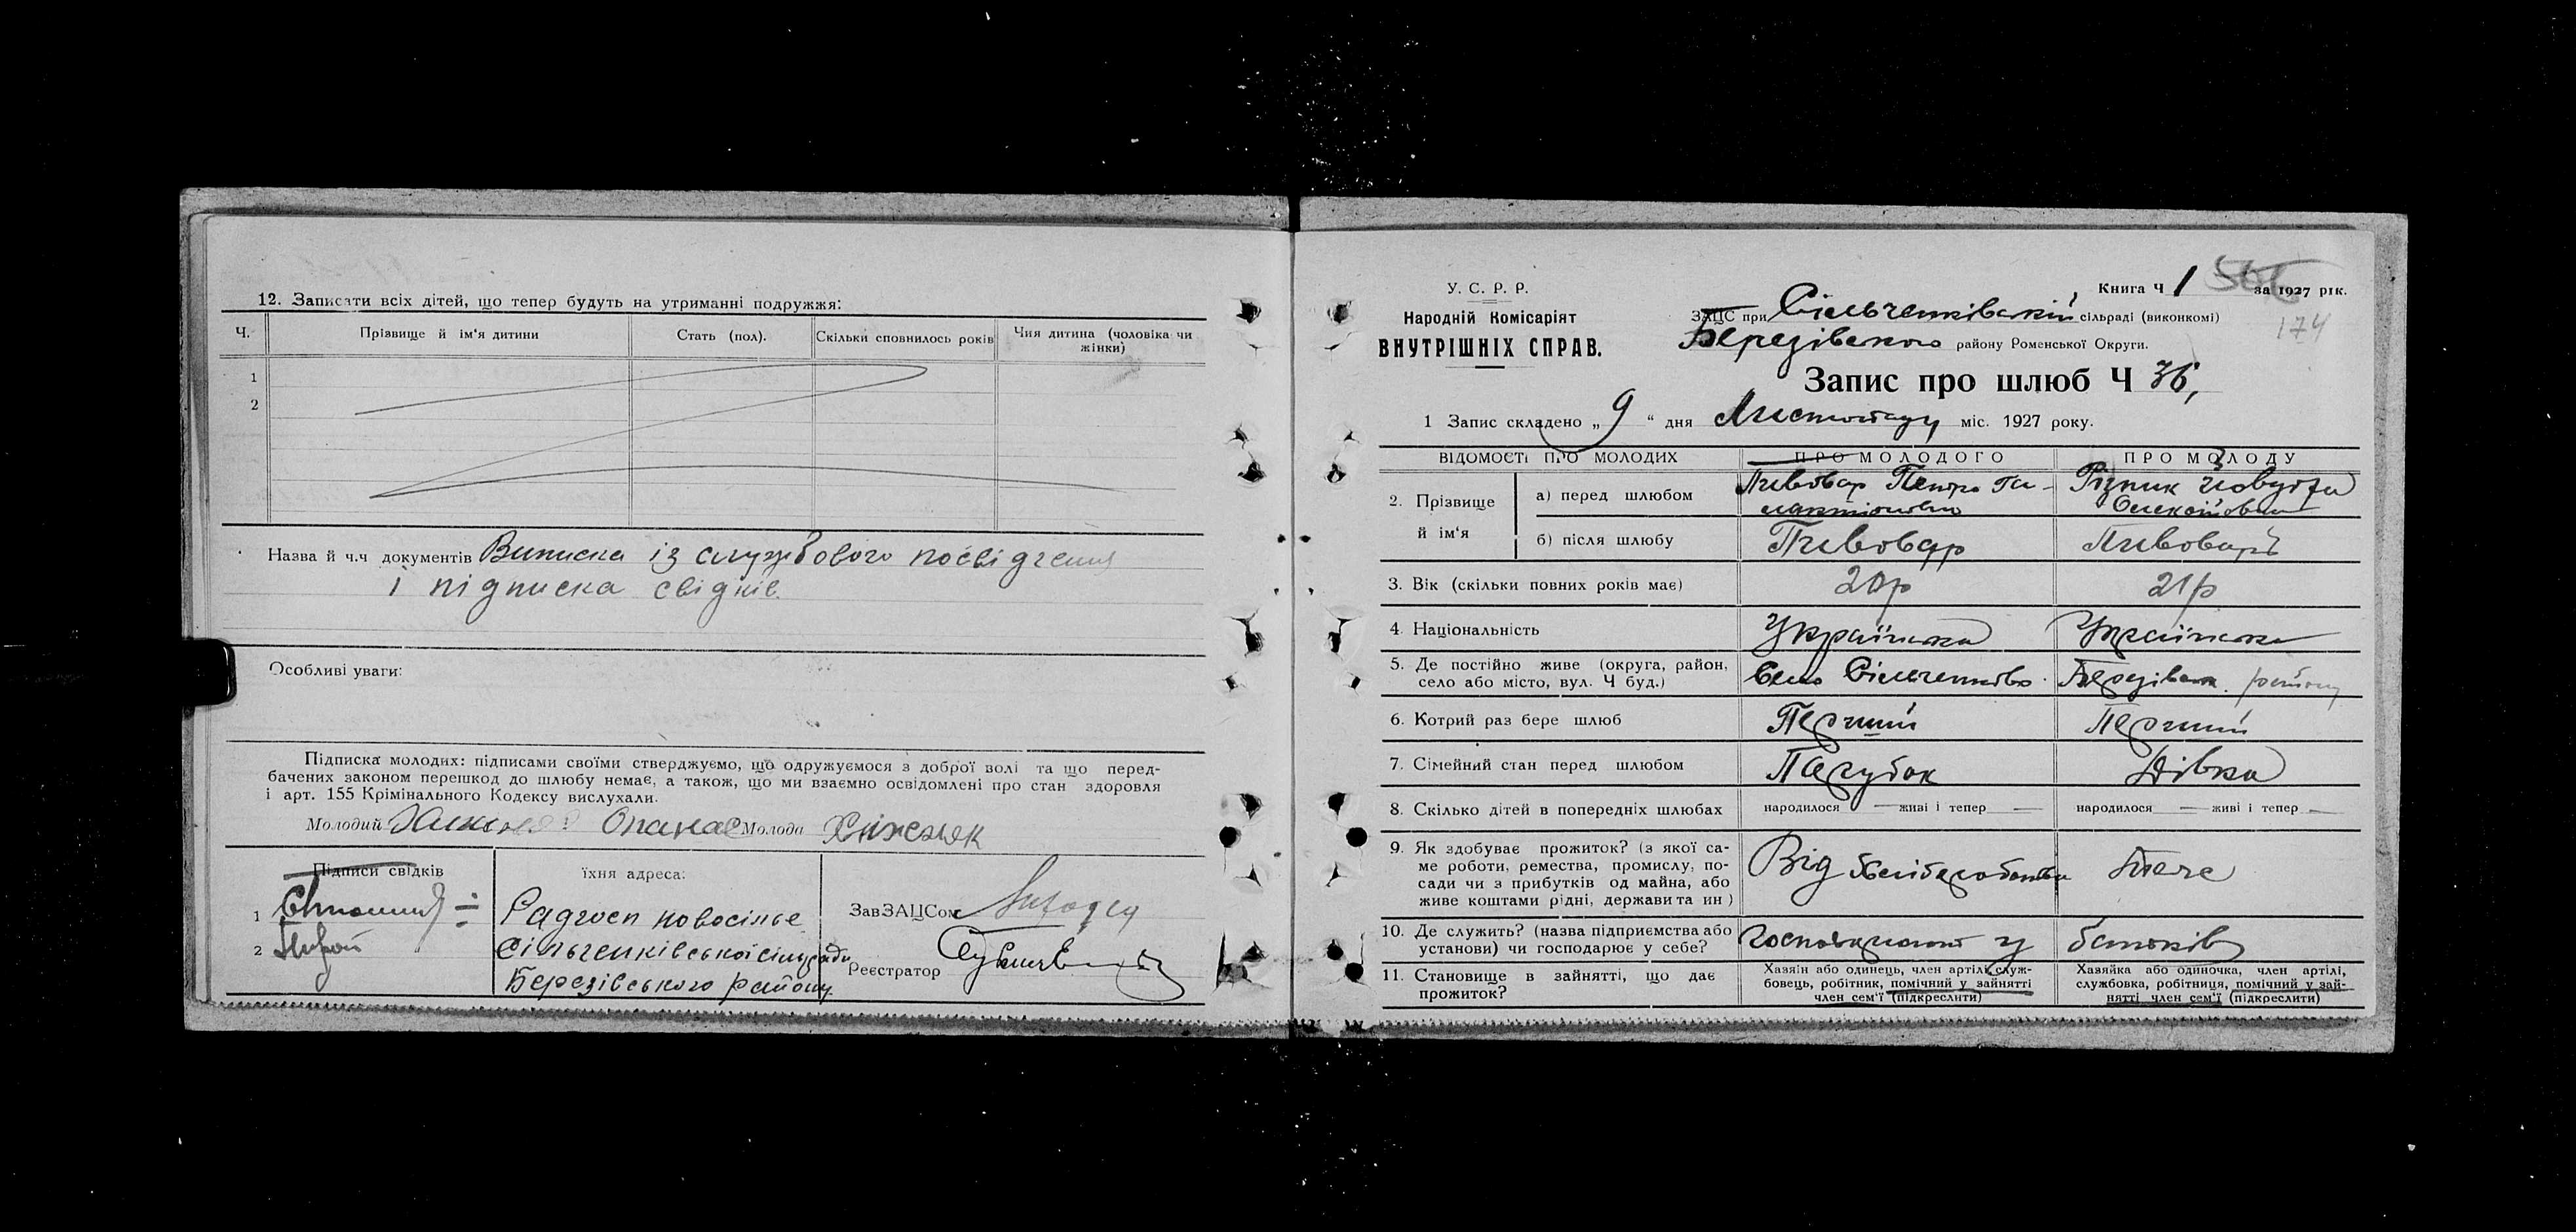 12. Записати всіх дітей, що тепер будуть на утриманні подружжя:
Ч. Прізвище й ім'я дитини Стать (пол). Скільки сповнилось років Чия дитина (чоловіка чи жінки)
1
2
Назва й ч.ч документів Виписка із службового посвідчення
і підписка свідків.
Особливі уваги:
Підписка молодих: підписами своїми стверджуємо, що одружуємося з доброї волі та що перед-
бачених законом перешкод до шлюбу немає, а також, що ми взаємно освідомлені про стан здоровля
і арт. 155 Крімінального Кодексу вислухали.
Молодий Опанас Молода
Підписи свідків їхня адреса:
1 Радгосп новосілье ЗавЗАЦСом
2 Сільченківської сільради
Березівського району Реєстратор
У. С. Р. Р.
Народній Комісаріят
ВНУТРІШНІХ СПРАВ.
Книга Ч 1 за 1927 рік.
174
ЗАЦС при Сільченківській сільраді (виконкомі)
Березівського району Роменської Округи.
Запис про шлюб Ч 36,
1 Запис складено „ 9 “ дня Листопаду міс. 1927 року.
ВІДОМОСТІ ПРО МОЛОДИХ ПРО МОЛОДОГО ПРО МОЛОДУ
2. Прізвище й ім'я
а) перед шлюбом Пивовар Петро Га- Різник
б) після шлюбу Пивовар Пивовар
3. Вік (скільки повних років має) 20р 21р
4. Національність Українська Українська
5. Де постійно живе (округа, район,
село або місто, вул. Ч буд.) Село Сільченково Березівск. району
6. Котрий раз бере шлюб Перший Перший
7. Сімейний стан перед шлюбом Парубок Дівка
8. Скілько дітей в попередніх шлюбах народилося — живі і тепер — народилося — живі і тепер —
9. Як здобуває прожиток? (з якої са-
ме роботи, ремества, промислу, по-
сади чи з прибутків од майна, або
живе коштами рідні, держави та ин) Від хліборобства Теже
10. Де служить? (назва підприємства або
установи) чи господарює у себе? Господарює у батьків
11. Становище в зайнятті, що дає
прожиток?
Хазяїн або одинець, член артілі, служ-
бовець, робітник, помічний у зайнятті
член сем'ї (підкреслити)
Хазяйка або одиночка, член артілі,
службовка, робітниця, помічний у зай-
нятті член сем'ї (підкреслити)